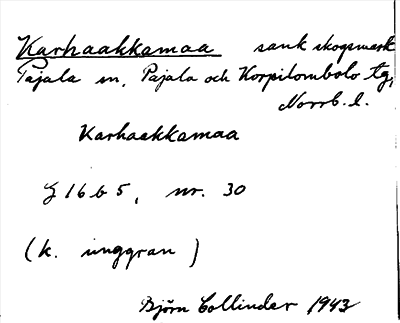 Karhaakkamaa sank skogsmark
Pajala sn, Pajala och Korpilombolo tg,
Norrb. l.
Karhaakkamaa
§ 16 b 5, nr. 30
(k. unggran)
Björn Collinder 1943